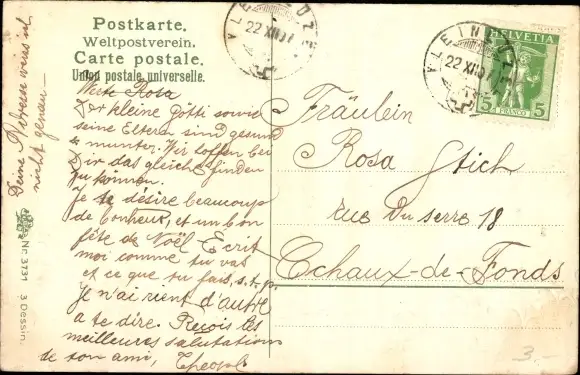 Postkarte.
Weltpostverein.
Carte postale.
Union postale universelle.
Deine Adresse weiss ich
nicht genau —
Werte Rosa
Der kleine Götti sowie
seine Eltern sind gesund
munter. Wir hoffen bei
dir das gleiche finden
zu können.
Je te désire beaucoup
de bonheur, et un bon
fête de Noël. Ecrit
moi comme tu vas
et ce que tu fais, s.t.p.
Je n'ai rient d'autre
a te dire. Reçois les
meilleures salutations
de ton ami,
Nr. 3731 3 Dessin.
22 XII 07
KLEINLÜTZEL
22 XII 07
HELVETIA
5 5
FRANCO
Fräulein
Rosa Stich
rue Du serre 18
Chaux-de-Fonds
3.-